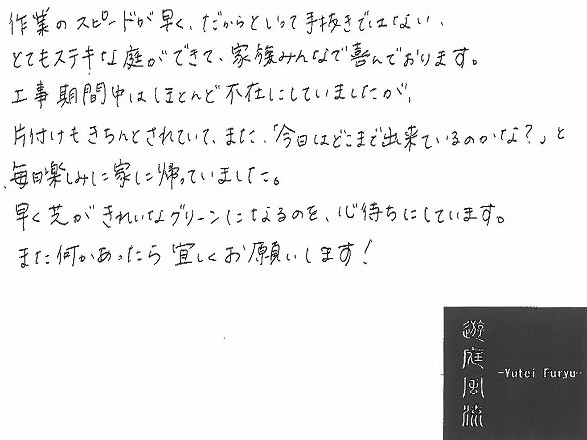 作業のスピードが早く、だからといって手抜きではない、
とてもステキな庭ができて、家族みんなで喜んでおります。
工事期間中はほとんど不在にしていましたが、
片付けもきちんとされていて、また、「今日はどこまで出来ているのかな？」と
毎日楽しみに家に帰っていました。
早く芝がきれいなグリーンになるのを、心待ちにしています。
また何かあったら宜しくお願いします！
遊庭風流
-Yutei Furyu-